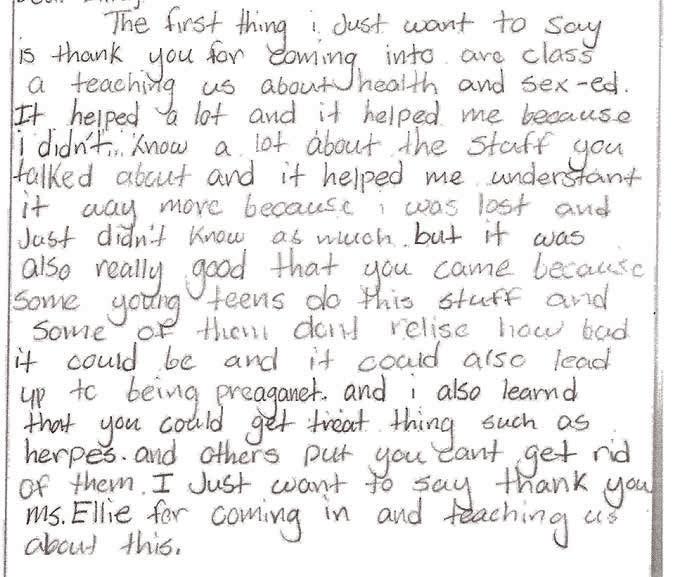 The first thing i Just want to say
is thank you for coming into are class
a teaching us about health and sex-ed.
It helped a lot and it helped me because
i didn't. Know a lot about the staff you
talked about and it helped me understant
it way more because i was lost and
Just didn't know as much but it was
also really good that you came because
some young teens do this stuff and
some of them dont relise how bad
it could be and it could also lead
up to being preaganet. and i also learnd
that you could get treat thing such as
herpes. and others put you cant get rid
of them. I Just want to say thank you
ms. Ellie for coming in and teaching us
about this.